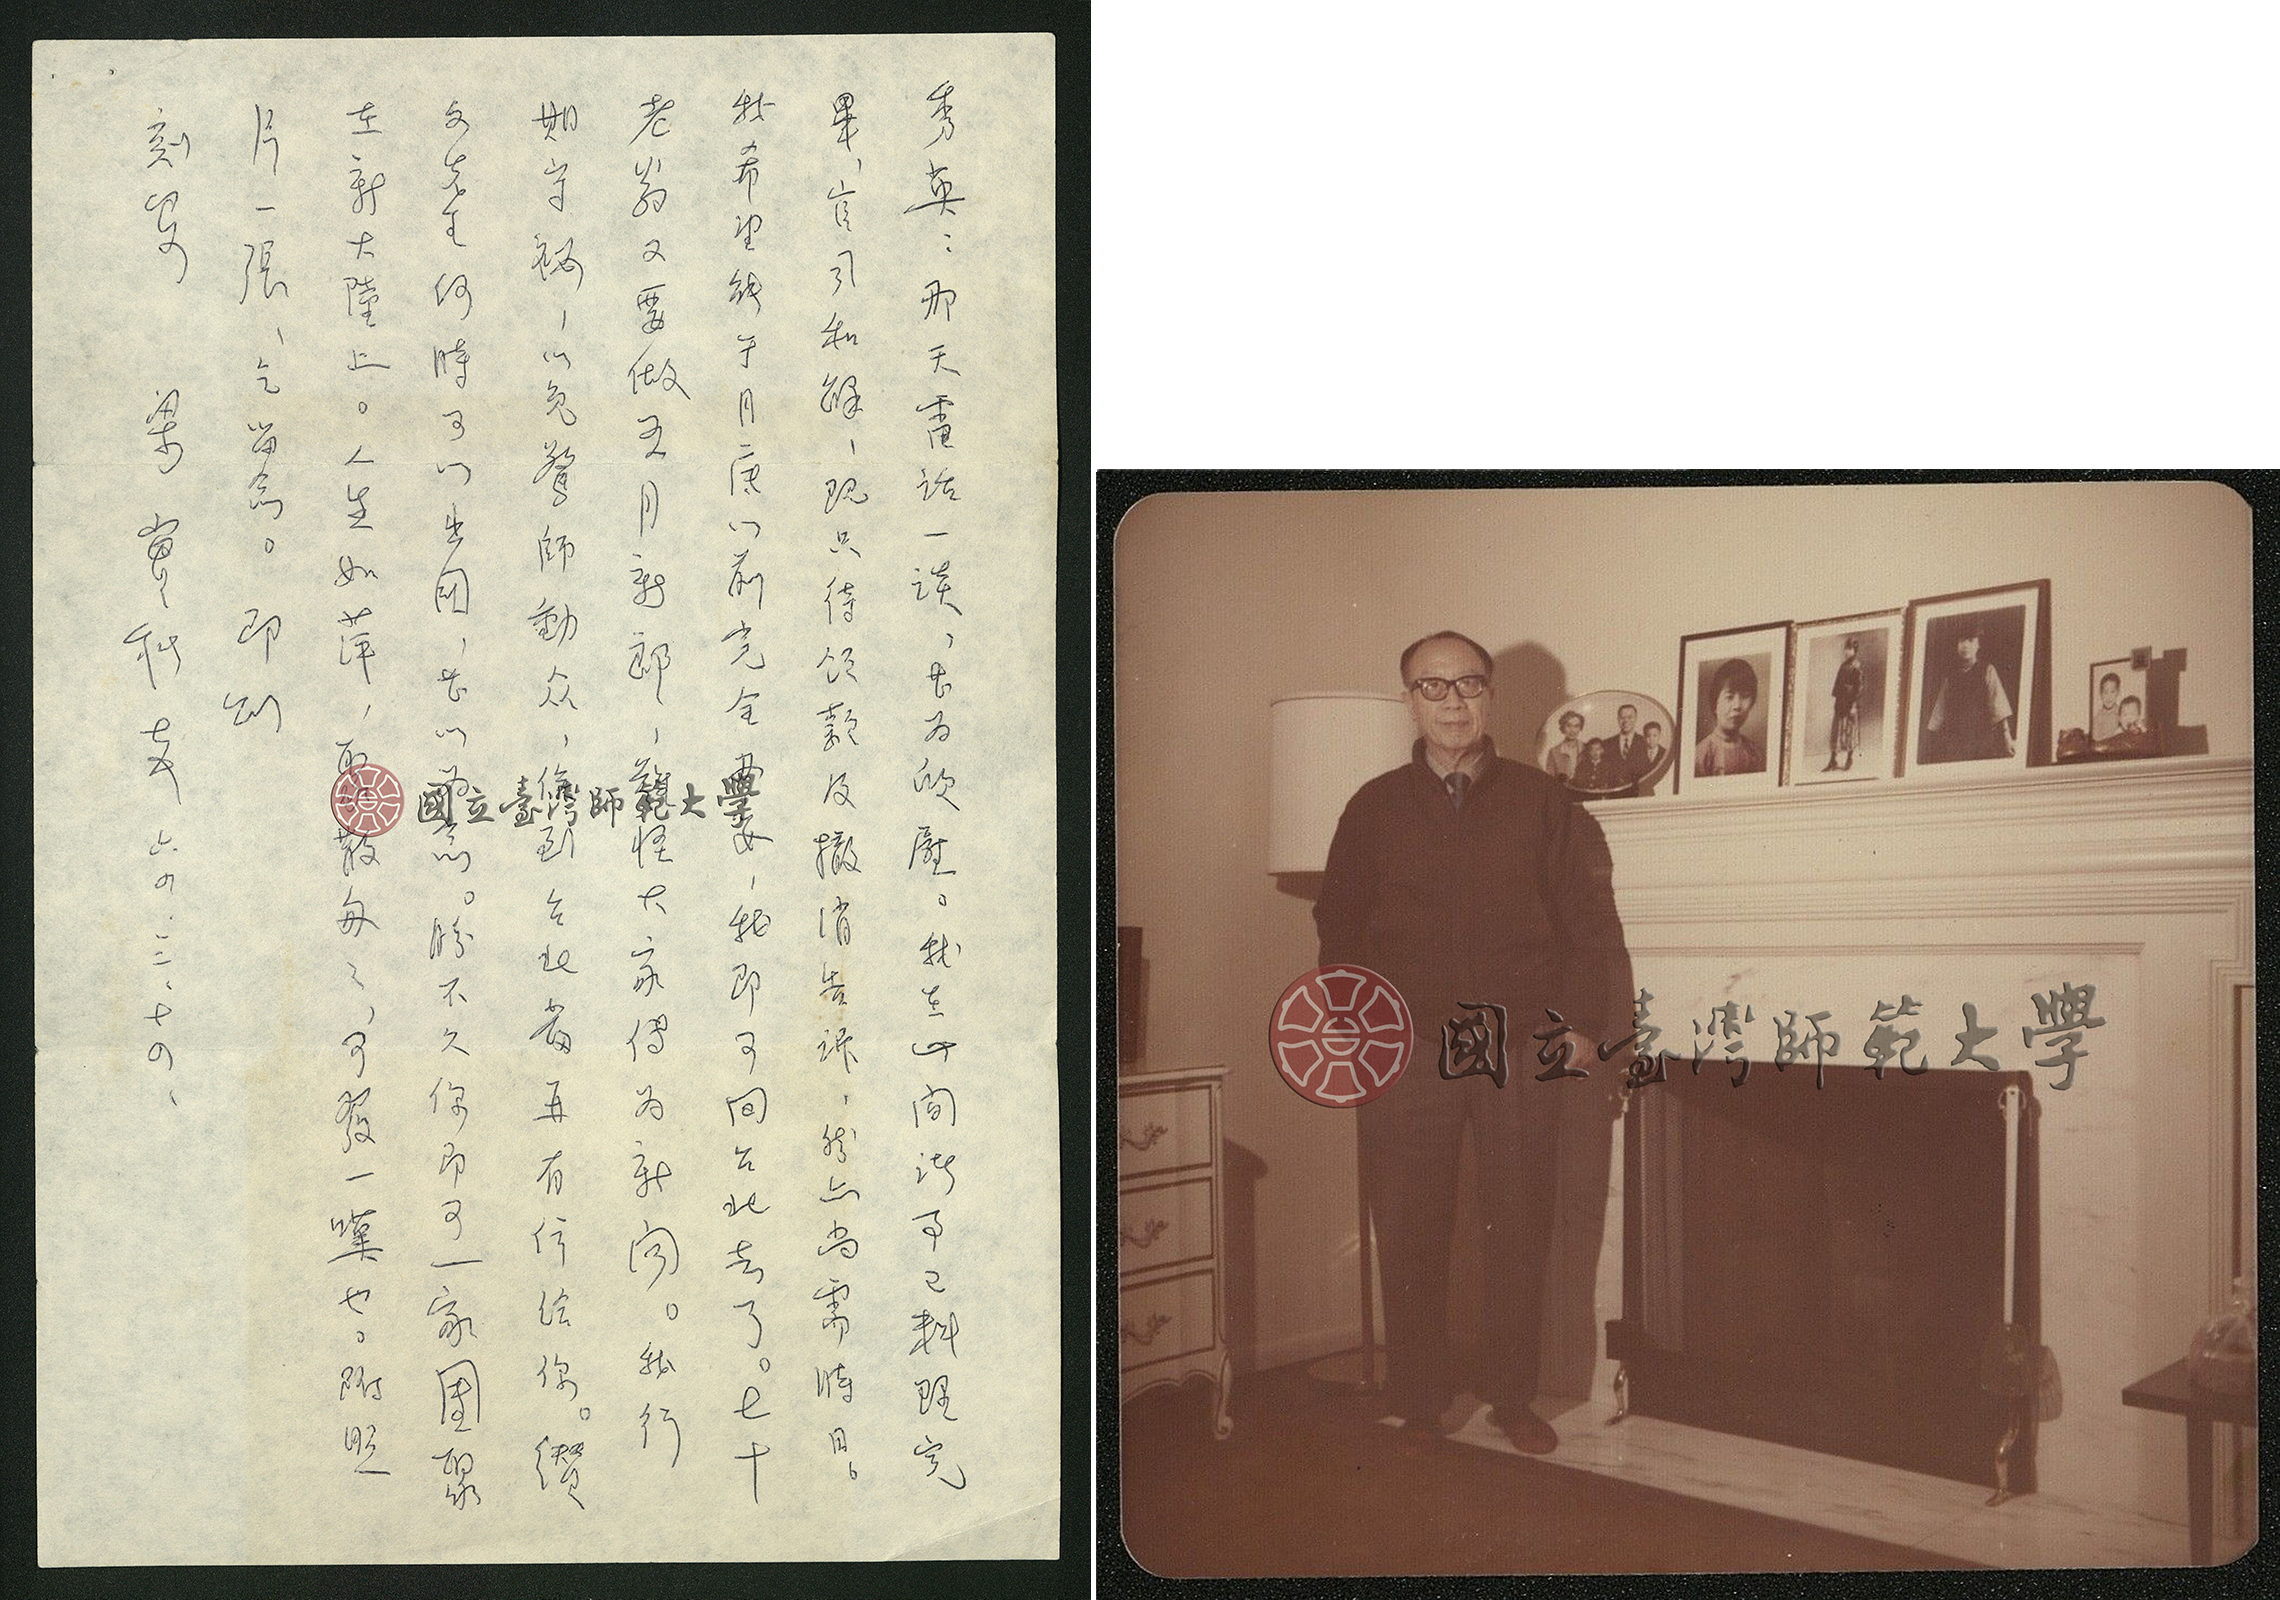 秀英：那天電話一談，甚為欣慰。我在此間諸事已料理完
畢，官司和解，既只待領款及撤消告訴，然亦尚需時日。
我希望能于月底以前完全畢，我即可回台北去了。七十
老翁又要做五月新郎，難怪大家傳為新聞。我行
期守祕，以免驚師動众，俟到台北當再有信給你。纘
文先生何時可以出國，甚以為念。勝不久你即可一家團聚
在新大陸上。人生如萍，聚散匆匆，可發一嘆也。附照
片一張，乞留念。即刻
刻安
梁實秋 六四.三.十四、
國立臺灣師範大學
國立臺灣師範大學